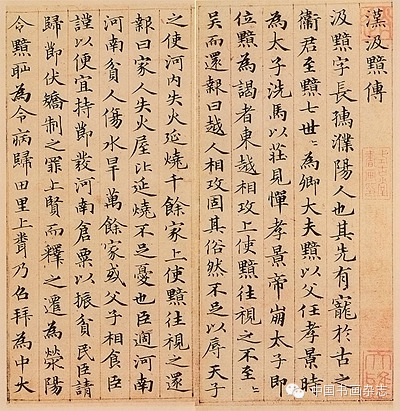 漢汲黯傳
汲黯字長孺濮陽人也其先有寵於古之
衛君至黯七世〻為卿大夫黯以父任孝景時
為太子洗馬以莊見憚孝景帝崩太子即
位黯為謁者東越相攻上使黯往視之不至〻
吳而還報曰越人相攻固其俗然不足以辱天子
之使河內失火延燒千餘家上使黯往視之還
報曰家人失火屋比延燒不足憂也臣過河南
河南貧人傷水旱萬餘家或父子相食臣
謹以便宜持節發河南倉粟以振貧民臣請
歸節伏矯制之罪上賢而釋之遷為滎陽
令黯恥為令病歸田里上聞乃召拜為中大
中国书画杂志